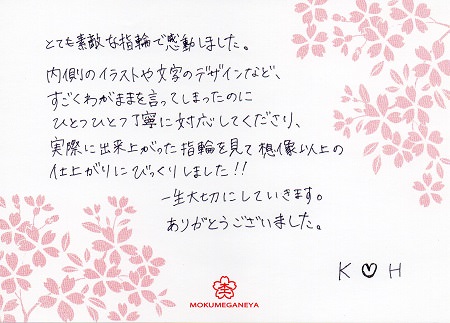 とても素敵な指輪で感動しました。
内側のイラストや文字のデザインなど、
すごくわがままを言ってしまったのに
ひとつひとつ丁寧に対応してくださり、
実際に出来上がった指輪を見て想像以上の
仕上がりにびっくりしました!!
一生大切にしていきます。
ありがとうございました。
K♡H
MOKUMEGANEYA